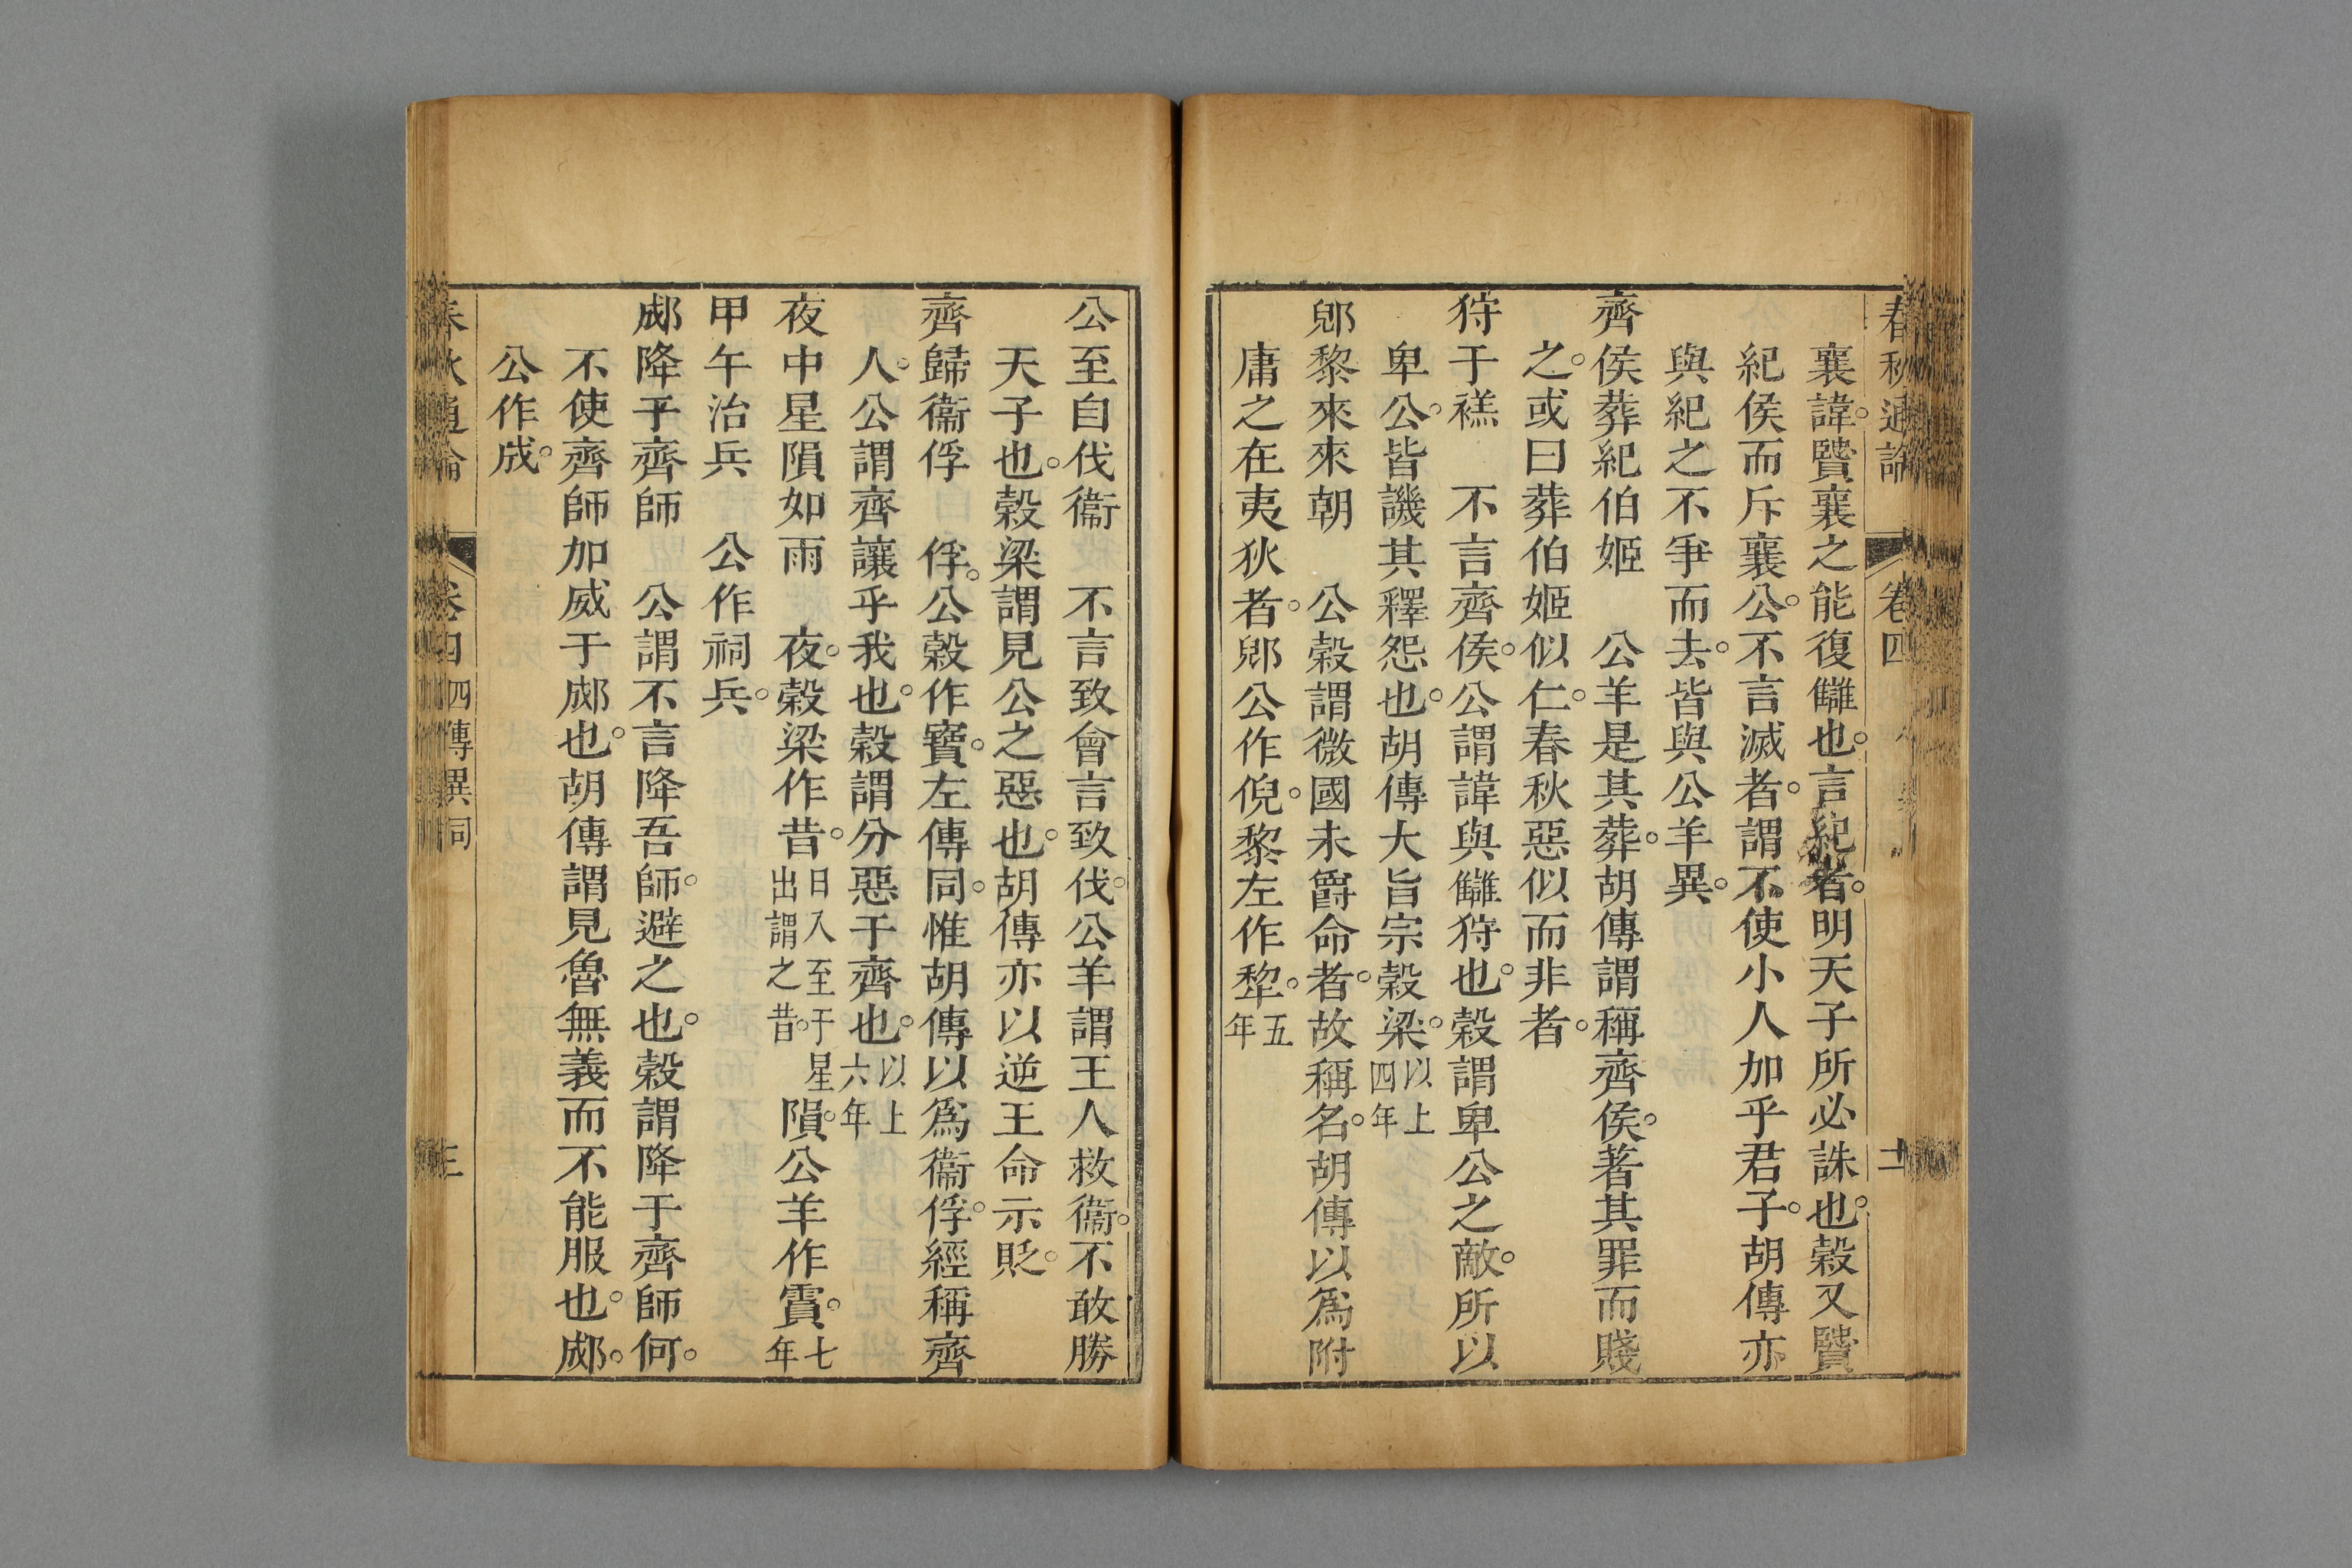 春秋通論 卷四 二
襄諱。賢襄之能復讎也。言紀者。明天子所必誅也。穀又賢
紀侯而斥襄公。不言滅者。謂不使小人加乎君子。胡傳亦
與紀之不爭而去。皆與公羊異。
齊侯葬紀伯姬 公羊是其葬。胡傳謂稱齊侯。著其罪而賤
之。或曰葬伯姬似仁。春秋惡似而非者。
狩于禚 不言齊侯。公謂諱與讎狩也。穀謂卑公之敵。所以
卑公。皆譏其釋怨也。胡傳大旨宗穀梁。以上四年
郳黎來來朝 公穀謂微國未爵命者。故稱名。胡傳以爲附
庸之在夷狄者。郳公作倪。黎左作犂。五年
公至自伐衞 不言致會言致伐。公羊謂王人救衞。不敢勝
天子也。穀梁謂見公之惡也。胡傳亦以逆王命示貶。
齊歸衞俘 俘。公穀作寶。左傳同。惟胡傳以爲衞俘。經稱齊
人。公謂齊讓乎我也。穀謂分惡于齊也。以上六年
夜中星隕如雨 夜。穀梁作昔。日入至于星出謂之昔。隕。公羊作霣。七年
甲午治兵 公作祠兵。
郕降于齊師 公謂不言降吾師。避之也。穀謂降于齊師何。
不使齊師加威于郕也。胡傳謂見魯無義而不能服也。郕。
公作成。
春秋通論 卷四 四傳異同 三